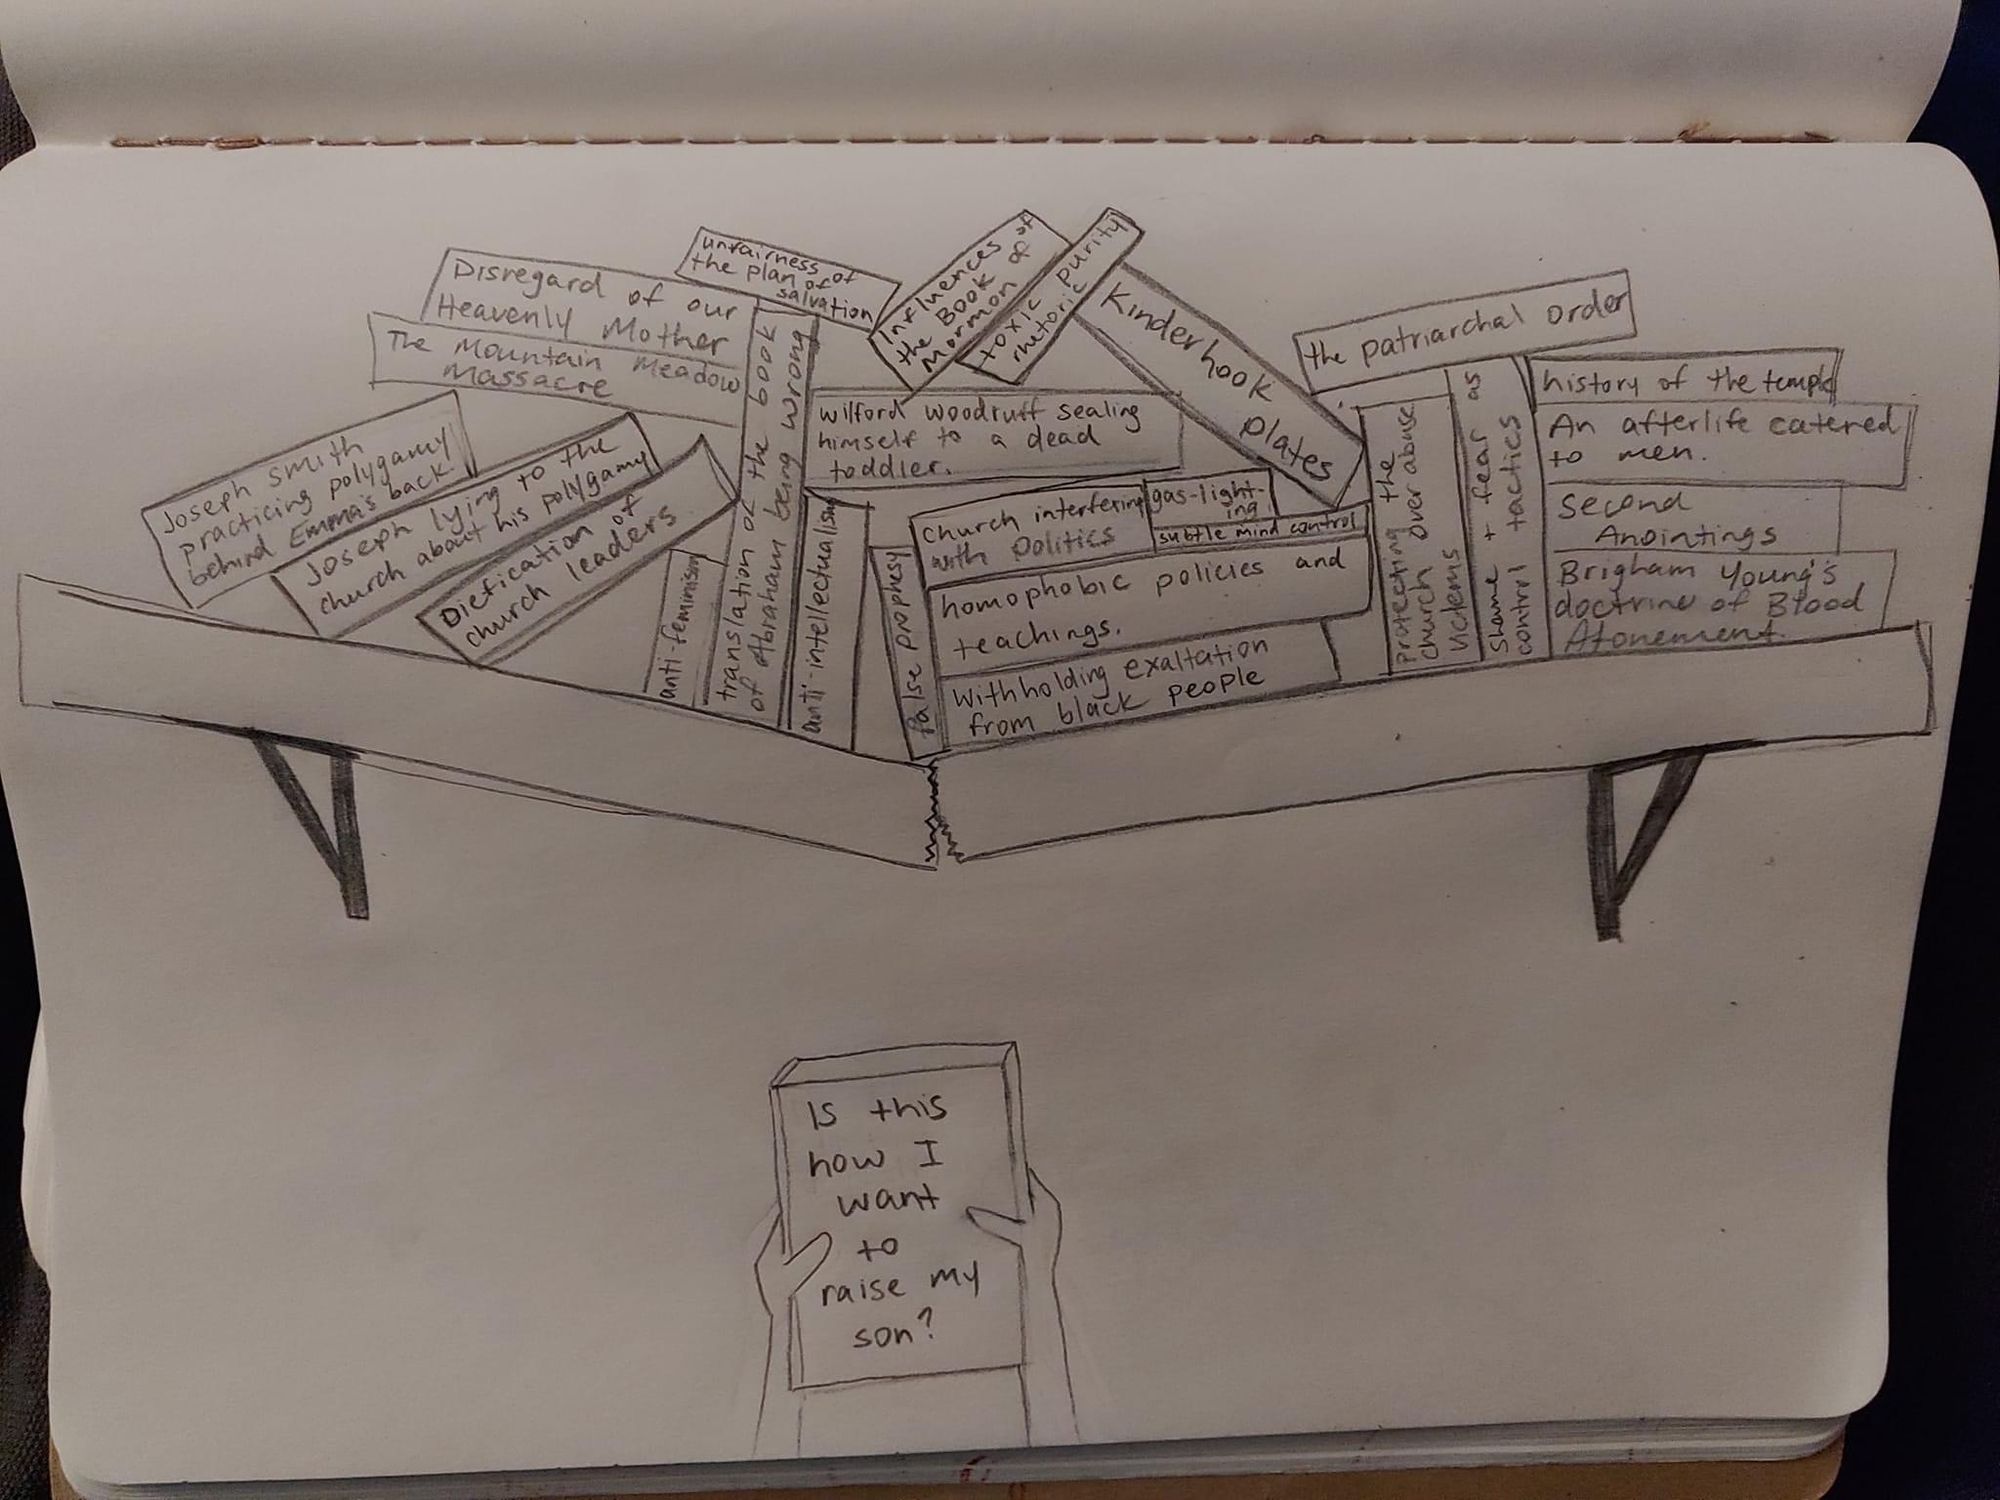 unfairness of
the plan of of
salvation
Influences of
the Book of
Mormon
toxic purity
rhetoric
Disregard of our
Heavenly Mother
The Mountain Meadow
Massacre
Kinderhook
plates
the patriarchal order
Joseph Smith
practicing polygamy
behind Emma's back
Joseph lying to the
church about his polygamy
Dieification of
church leaders
anti-feminism
translation of the book
of Abraham being wrong
wilford woodruff sealing
himself to a dead
toddler.
anti-intellectualism
false prophesy
Church interfering
with politics
gas-light-
ing
subtle mind control
homophobic policies and
teachings.
Withholding exaltation
from black people
protecting the
church over abuse
victems
Shame + fear as
control tactics
history of the temple
An afterlife catered
to men.
Second
Anointings
Brigham Young's
doctrine of Blood
Atonement.
Is this
how I
want
to
raise my
son?